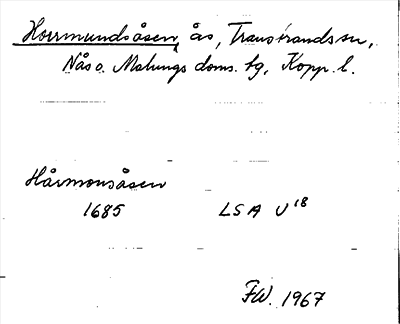 Horrmundsåsen, ås, Transtrands sn,
Nås o. Malungs doms. tg, Kopp. l.
Hårmonsåsen
1685 LSA U 18
FW. 1967